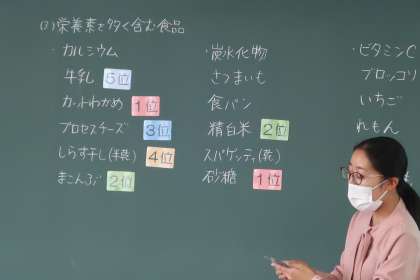 (3)栄養素を多く含む食品
・カルシウム
牛乳 5位
カットわかめ 1位
プロセスチーズ 3位
しらす干し(半乾) 4位
まこんぶ 2位
・炭水化物
さつまいも
食パン
精白米 2位
スパゲッティ(乾)
砂糖 1位
・ビタミンC
ブロッコリ
いちご
れもん